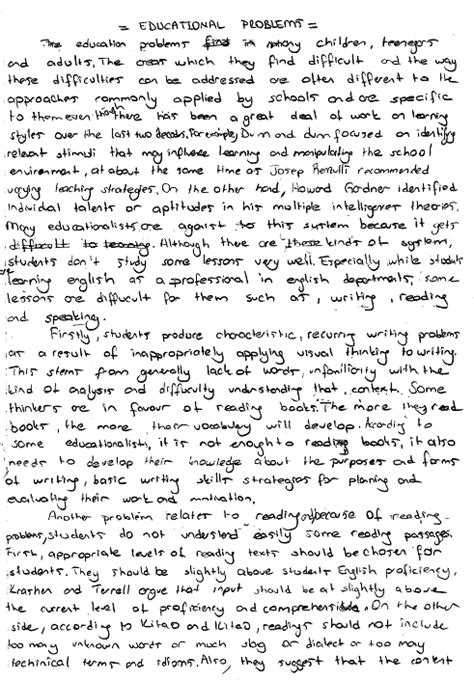 = EDUCATIONAL PROBLEMS =
The education problems find in many children, teenegers
and adults. The areas which they find difficult and the way
these difficulties can be addressed are often different to the
approaches commonly applied by schools and are specific
to them even though there has been a great deal of work on learning
styles over the last two decads. For example; Dunn and dunn focused on identifying
relevant stimuli that may influence learning and manipulating the school
environment, at about the same time as Josep Renzulli recommended
varying teaching strategies. On the other hand, Howard Gardner identified
individal talents or aptitudes in his multiple intelligences theories.
Many educationalists are against to this system because it gets
difficult to learning. Although there are these kinds of system,
students don't study some lessons very well. Especially, while students
are learning english as a professional in english departments, some
lessons are diffucult for them such as, writing, reading
and speaking.
Firstly, students produce characteristic, recurring writing problems
as a result of inappropriately applying visual thinking to writing.
This stems from generally lack of words, unfamiliarity with the
kind of analysis and difficulty understanding that context. Some
thinkers are in favour of reading books. The more they read
books, the more their vocabulary will develop. Acording to
some educationalists, it is not enought to reading books, it also
needs to develop their knowledge about the purposes and forms
of writing, basic writing skills strategies for planing and
evaluating their work and motivation.
Another problem relates to reading because of reading-
problems, students do not understand easily some reading passages.
First, appropriate levels of reading texts should be chosen for
students. They should be slightly above students English proficiency.
Krashen and Terrell argue that input should be at slightly above
the current level of proficiency and comprehensible. On the other
side, according to Kitao and Kitao, readings should not include
too many unknown words or much slag or dialect or too may
techinical terms and idioms. Also, they suggest that the content